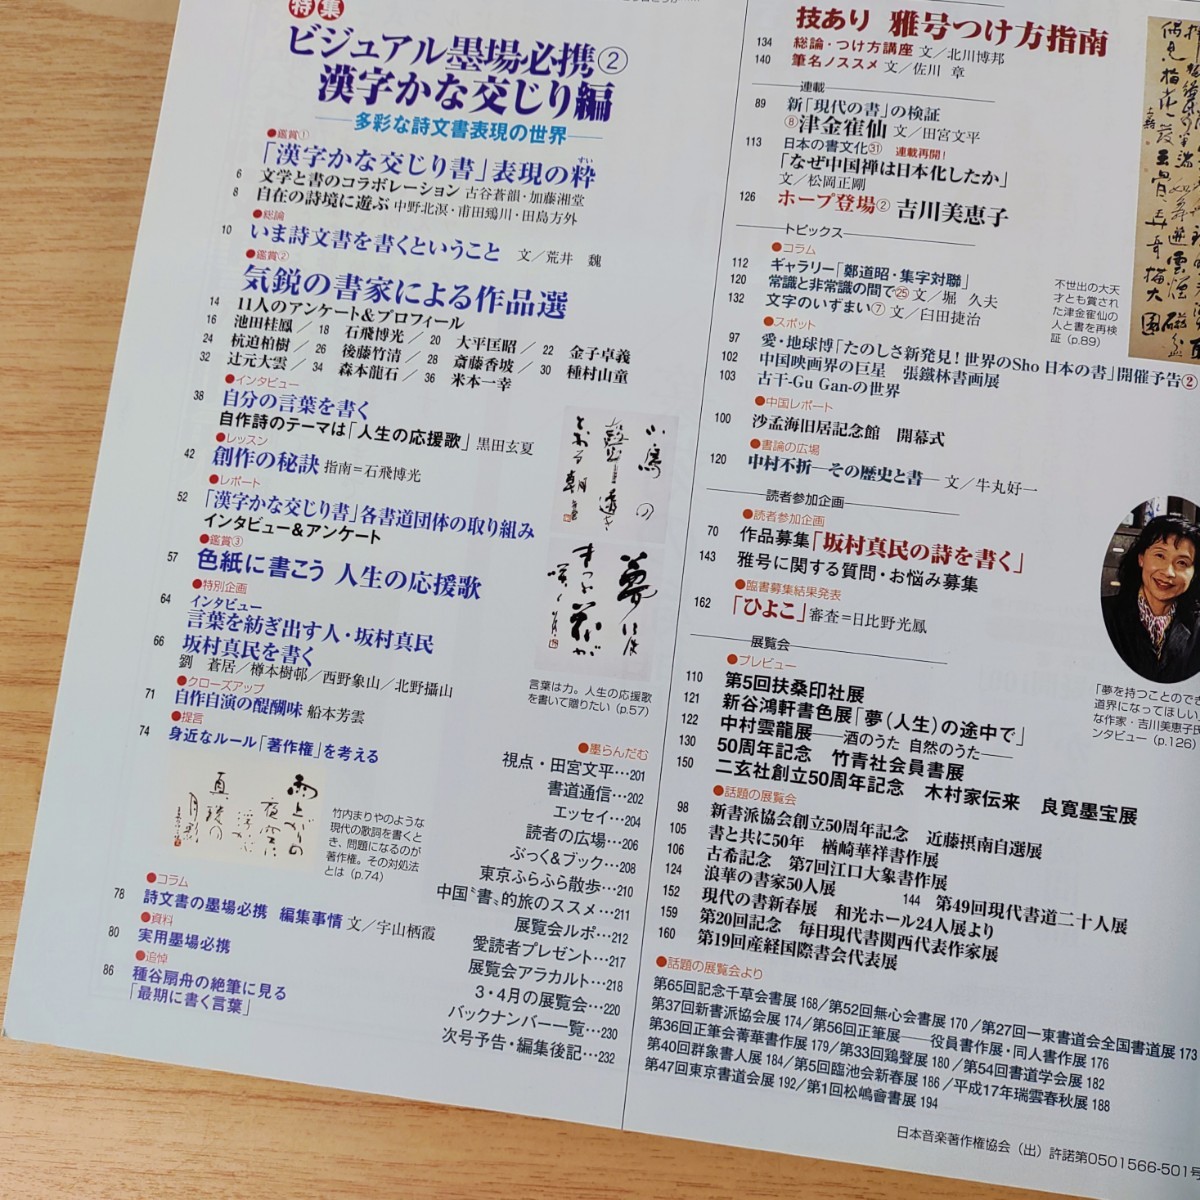 特集
ビジュアル墨場必携②
漢字かな交じり編
多彩な詩文書表現の世界
●鑑賞①
「漢字かな交じり書」表現の粋
すい
6 文学と書のコラボレーション 古谷蒼韻・加藤湘堂
8 自在の詩境に遊ぶ 中野北溟・甫田鵄川・田島方外
●総論
10 いま詩文書を書くということ 文／荒井 魏
●鑑賞②
気鋭の書家による作品選
14 11人のアンケート&プロフィール
16 池田桂鳳／18 石飛博光／20 大平匡昭／22 金子卓義
24 杭迫柏樹／26 後藤竹清／28 斎藤香坡／30 種村山童
32 辻元大雲／34 森本龍石／36 米本一幸
●インタビュー
38 自分の言葉を書く
自作詩のテーマは「人生の応援歌」 黒田玄夏
●レッスン
42 創作の秘訣 指南＝石飛博光
●レポート
52 「漢字かな交じり書」各書道団体の取り組み
インタビュー&アンケート
●鑑賞③
57 色紙に書こう 人生の応援歌
●特別企画
64 インタビュー
言葉を紡ぎ出す人・坂村真民
66 坂村真民を書く
劉 蒼居／樽本樹邨／西野象山／北野攝山
●クローズアップ
71 自作自演の醍醐味 船本芳雲
●提言
74 身近なルール「著作権」を考える
言葉は力。人生の応援歌
を書いて贈りたい（p.57）
竹内まりやのような
現代の歌詞を書くと
き、問題になるのが
著作権。その対処法
とは（p.74）
●コラム
78 詩文書の墨場必携 編集事情 文／宇山栖霞
●資料
80 実用墨場必携
●追悼
86 種谷扇舟の絶筆に見る
「最期に書く言葉」
●墨らんだむ
視点・田宮文平…201
書道通信…202
エッセイ…204
読者の広場…206
ぶっく&ブック…208
東京ふらふら散歩…210
中国〝書〟的旅のススメ…211
展覧会ルポ…212
愛読者プレゼント…217
展覧会アラカルト…218
3・4月の展覧会…220
バックナンバー一覧…230
次号予告・編集後記…232
技あり 雅号つけ方指南
134 総論・つけ方講座 文／北川博邦
140 筆名ノススメ 文／佐川 章
連載
89 新「現代の書」の検証
⑧津金寉仙 文／田宮文平
113 日本の書文化㉛ 連載再開！
「なぜ中国禅は日本化したか」
文／松岡正剛
126 ホープ登場② 吉川美恵子
トピックス
●コラム
112 ギャラリー「鄭道昭・集字対聯」
120 常識と非常識の間で㉕ 文／堀 久夫
132 文字のいずまい⑦ 文／臼田捷治
●スポット
97 愛・地球博「たのしさ新発見！世界のSho 日本の書」開催予告②
102 中国映画界の巨星 張鐵林書画展
103 古干-Gu Gan-の世界
●中国レポート
100 沙孟海旧居記念館 開幕式
●書論の広場
120 中村不折―その歴史と書― 文／牛丸好一
読者参加企画
●読者参加企画
70 作品募集「坂村真民の詩を書く」
143 雅号に関する質問・お悩み募集
●臨書募集結果発表
162 「ひよこ」審査＝日比野光鳳
展覧会
●プレビュー
110 第5回扶桑印社展
121 新谷鴻軒書色展「夢（人生）の途中で」
122 中村雲龍展――酒のうた 自然のうた――
130 50周年記念 竹青社会員書展
150 二玄社創立50周年記念 木村家伝来 良寛墨宝展
●話題の展覧会
98 新書派協会創立50周年記念 近藤摂南自選展
105 書と共に50年 楢崎華祥書作展
106 古希記念 第7回江口大象書作展
124 浪華の書家50人展 144 第49回現代書道二十人展
152 現代の書新春展 和光ホール24人展より
159 第20回記念 毎日現代書関西代表作家展
160 第19回産経国際書会代表展
●話題の展覧会より
第65回記念千草会書展 168／第52回無心会書展 170／第27回一東書道会全国書道展 173
第37回新書派協会展 174／第56回正筆展――役員書作展・同人書作展 176
第36回正筆会菁華書作展 179／第33回鶏聲展 180／第54回書道学会展 182
第40回群象書人展 184／第5回臨池会新春展 186／平成17年瑞雲春秋展 188
第47回東京書道会展 192／第1回松嶋會書展 194
不世出の大天
才とも賞され
た津金寉仙の
人と書を再検
証（p.89）
「夢を持つことのでき
道界になってほしい」
な作家・吉川美恵子氏
ンタビュー（p.126）
日本音楽著作権協会（出）許諾第0501566-501号